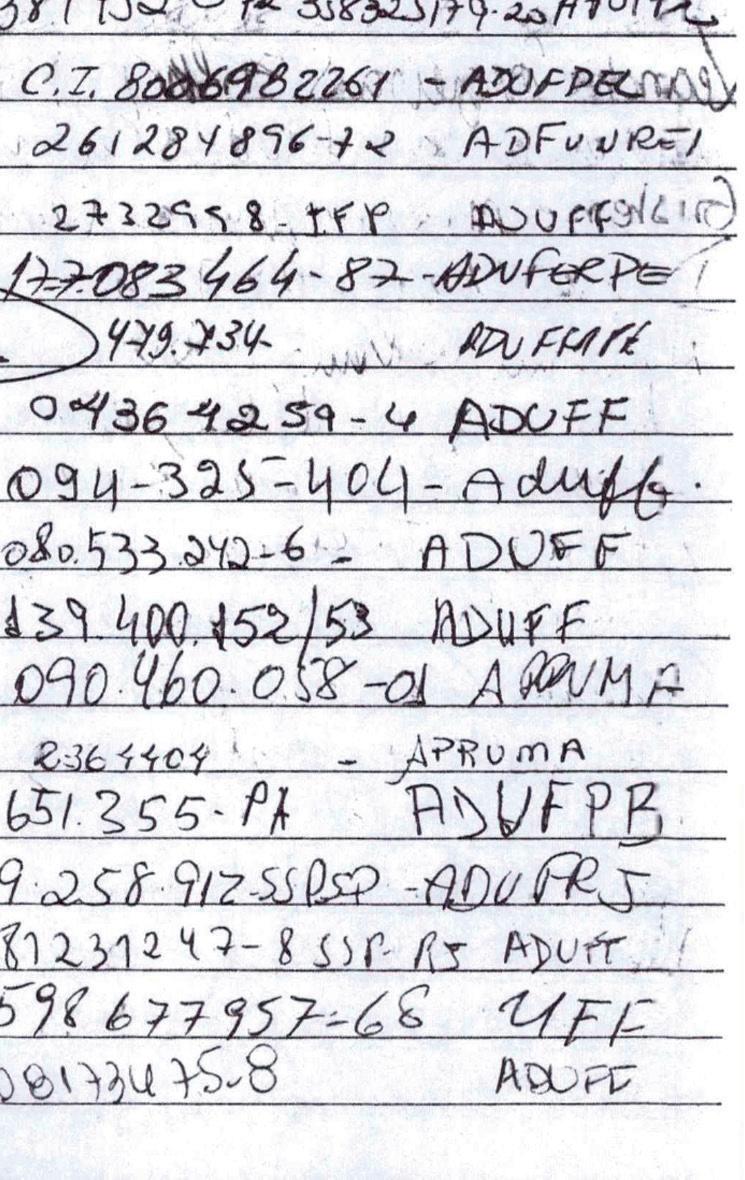 C.I. 8006982261 - ADUFPEL
261284896-72 ADFUNREI
2732958-IFP ADUFF
177.083464-87-ADUFERPE
479.734 ADUFEPE
04364259-4 ADUFF
094-325-404- Aduff.
080.533.242-6 - ADUFF
139.400.152/53 ADUFF
090.460.058-01 APRUMA
2364404 - APRUMA
651.355-PA ADUFPB
9.258.917-SSPSP -ADUFRJ
81231247-8 SSP-RJ ADUFF
598677957-68 UFF
08173475-8 ADUFF